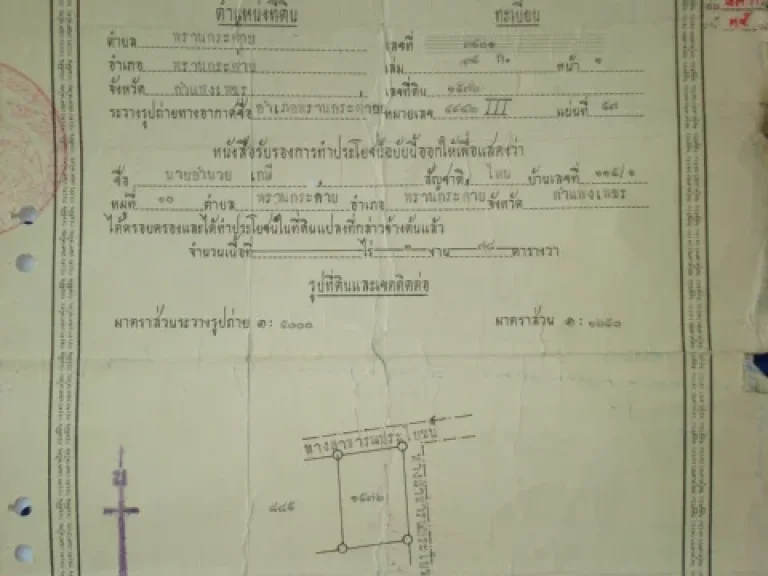 ตำแหน่งที่ดิน ทะเบียน
ตำบล พรานกระต่าย เลขที่
อำเภอ พรานกระต่าย เล่ม ก. หน้า ๑
จังหวัด กำแพงเพชร เลขที่ดิน ๑๕๗๒
ระวางรูปถ่ายทางอากาศชื่อ อำเภอพรานกระต่าย หมายเลข III แผ่นที่ ๕๗
หนังสือรับรองการทำประโยชน์ฉบับนี้ออกให้เพื่อแสดงว่า
ชื่อ นายอำนวย สัญชาติ ไทย บ้านเลขที่ ๑๑๕/๑
หมู่ที่ ๑๐ ตำบล พรานกระต่าย อำเภอ พรานกระต่าย จังหวัด กำแพงเพชร
ได้ครอบครองและได้ทำประโยชน์ในที่ดินแปลงที่กล่าวข้างต้นแล้ว
จำนวนเนื้อที่ ไร่ งาน ๗๘ ตารางวา
รูปที่ดินและเขตติดต่อ
มาตราส่วนระวางรูปถ่าย ๑ : ๕๐๐๐ มาตราส่วน ๑ : ๑๒๕๐
ทางสาธารณประโยชน์
ทางสาธารณประโยชน์
๑๕๗๒
๘๘๕
น